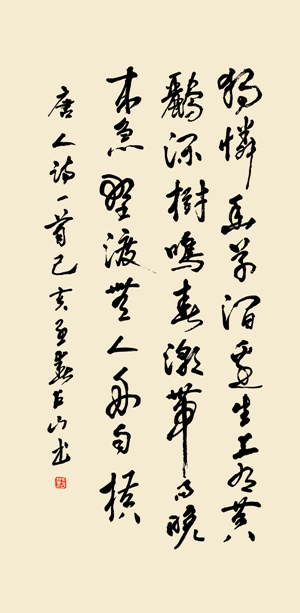 獨憐幽草澗邊生上有黄
鸝深樹鳴春潮帶雨晚
来急野渡無人舟自横
唐人詩一首己亥春山书